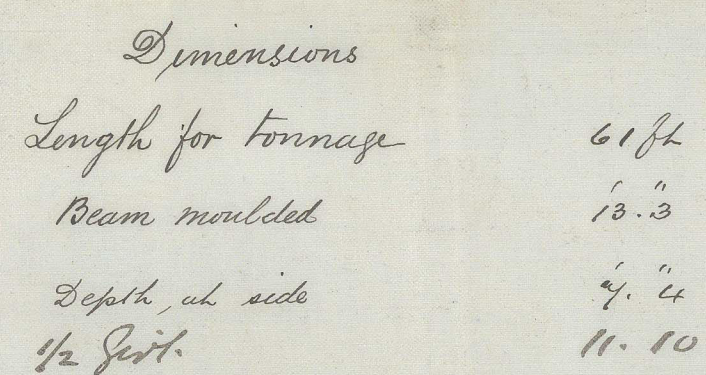 Dimensions
Length for tonnage 61 ft
Beam moulded 13'.3"
Depth at side 7'. 4"
1/2 Girt. 11. 10